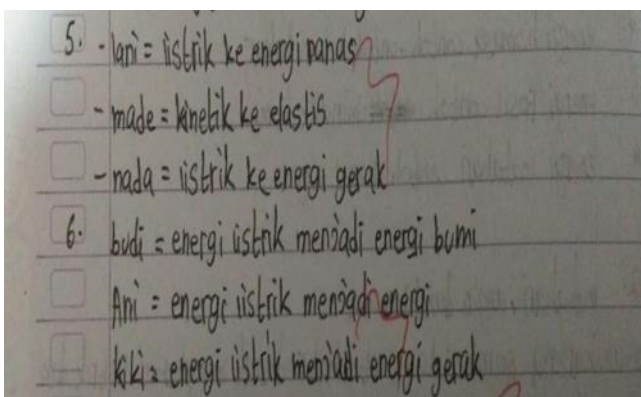 5. - lani = listrik ke energi panas
- made = kinetik ke elastis
- nada = listrik ke energi gerak
6. budi = energi listrik menjadi energi bumi
Ani = energi listrik menjadi energi
kiki = energi listrik menjadi energi gerak